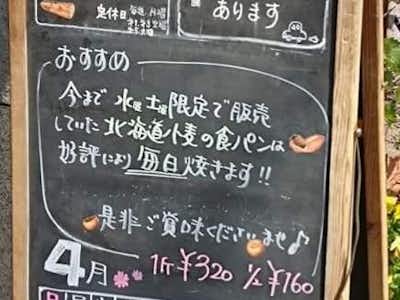 定休日 毎週 月曜
あります
おすすめ
今まで 水曜 土曜 限定で販売
していた 北海道小麦の食パンは
好評により 毎日 焼きます!!
是非ご賞味くださいませ♪
4月 1斤 ¥320 1/2 ¥160